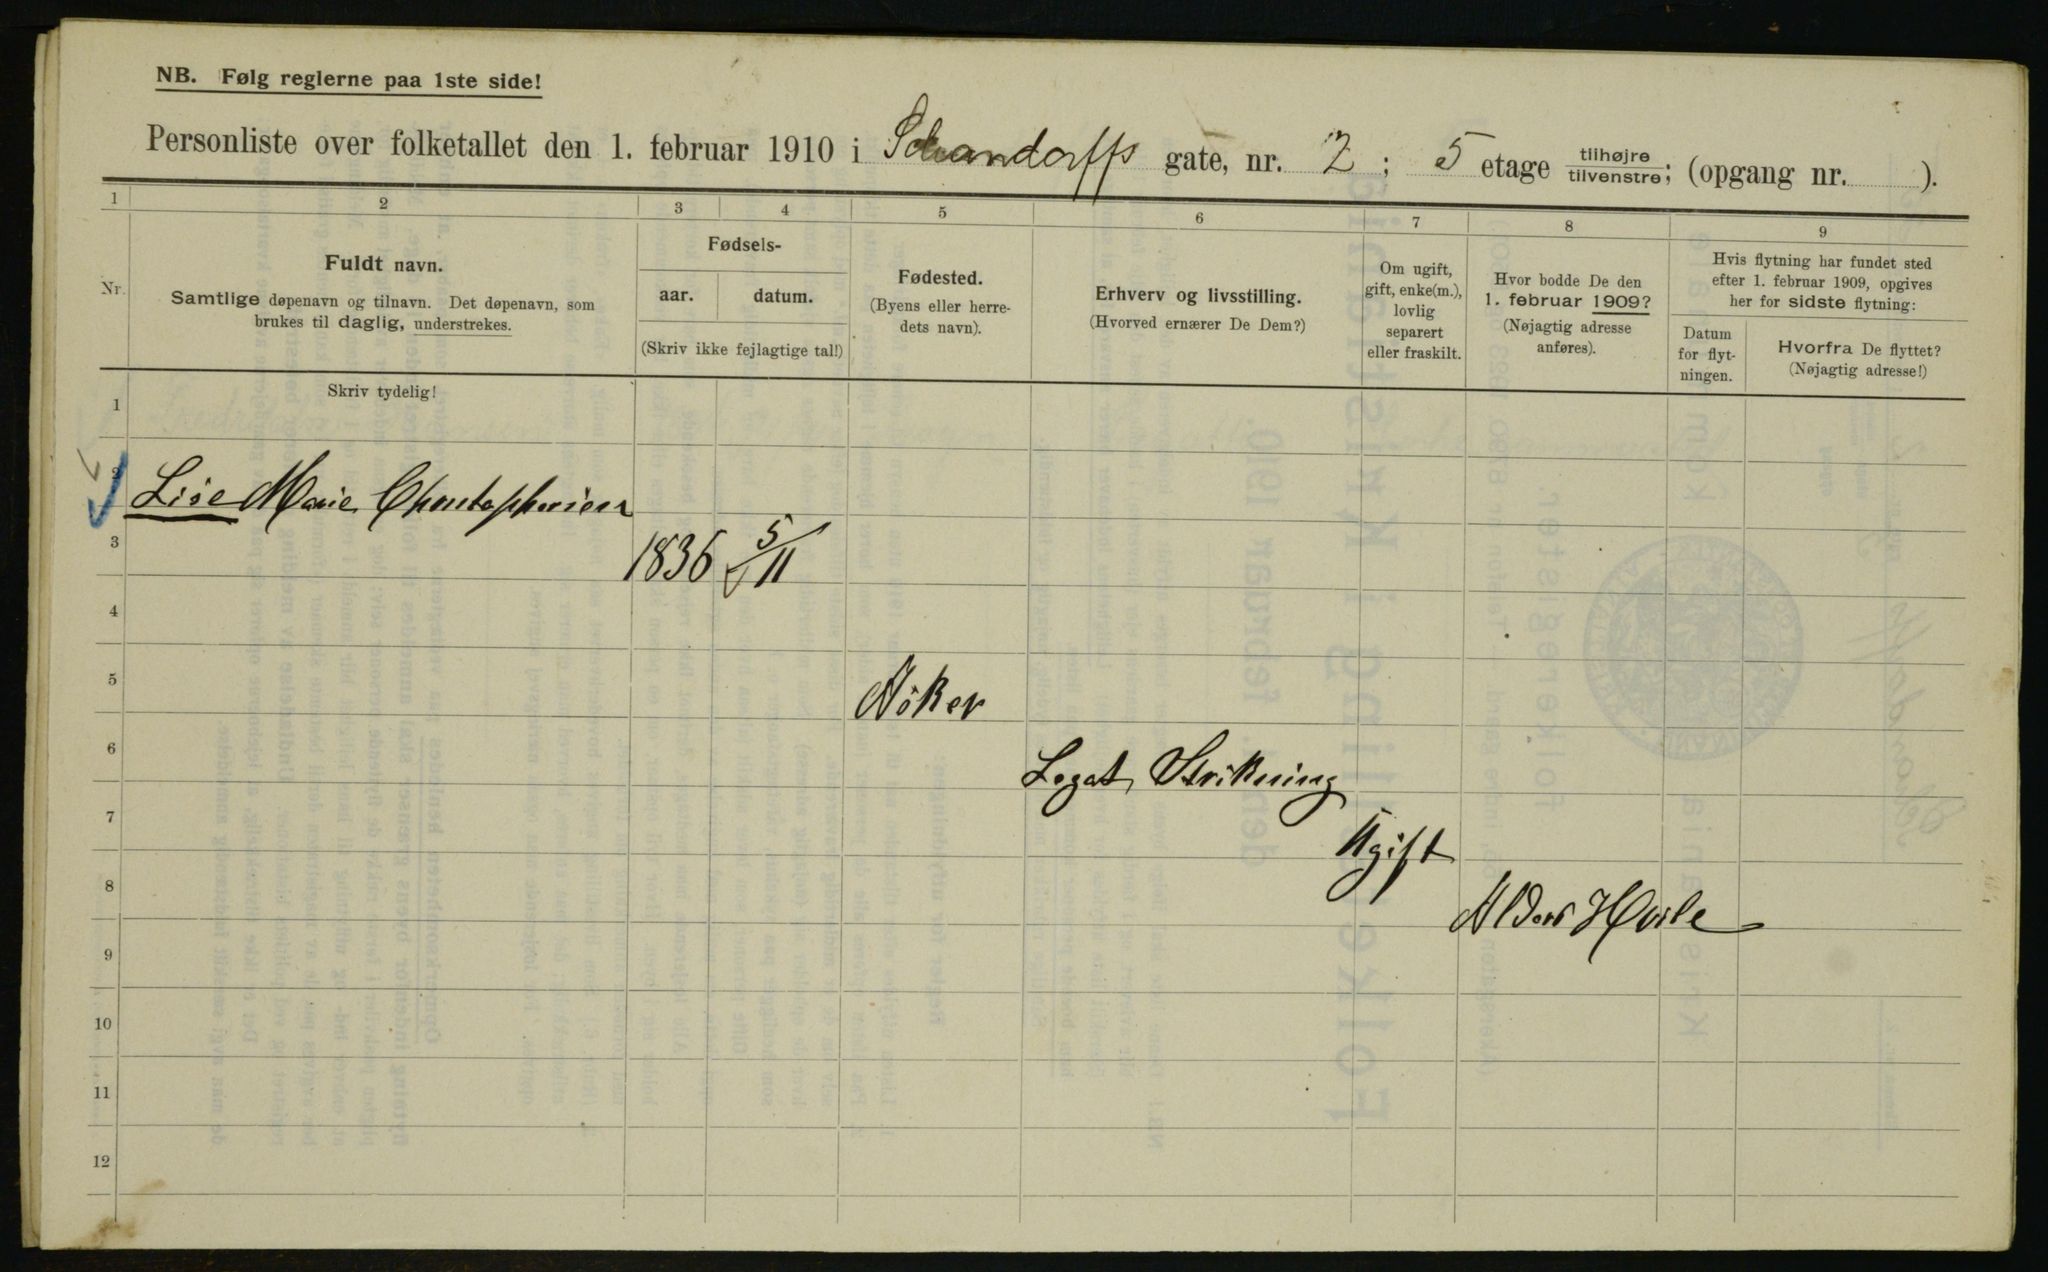 NB. Følg reglerne paa 1ste side!
Personliste over folketallet den 1. februar 1910 i Schandorffs gate, nr. 2 ; 5 etage tilhøjre/tilvenstre; (opgang nr. ).
1 2 3 4 5 6 7 8 9
Nr.
Fuldt navn.
Samtlige døpenavn og tilnavn. Det døpenavn, som
brukes til daglig, understrekes.
Fødsels-
aar. datum.
(Skriv ikke fejlagtige tal!)
Fødested.
(Byens eller herre-
dets navn).
Erhverv og livsstilling.
(Hvorved ernærer De Dem?)
Om ugift,
gift, enke(m.),
lovlig
separert
eller fraskilt.
Hvor bodde De den
1. februar 1909?
(Nøjagtig adresse
anføres).
Hvis flytning har fundet sted
efter 1. februar 1909, opgives
her for sidste flytning:
Datum
for flyt-
ningen.
Hvorfra De flyttet?
(Nøjagtig adresse!)
Skriv tydelig!
1
2
Lise Marie
3
1836 5/11
4
5
6
Legat, Strikning
7
Ugift
8
Alders Hvile
9
10
11
12